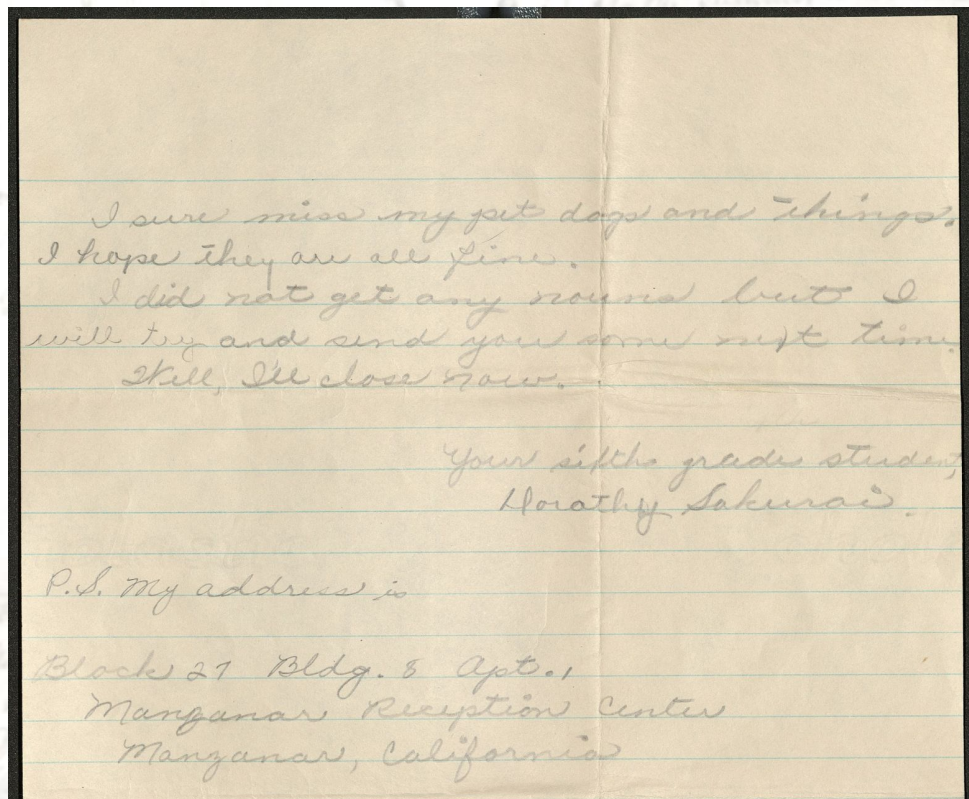 I sure miss my pet dogs and things.
I hope they are all fine.
I did not get any nouns but I
will try and send you some next time.
Well, I'll close now.
Your sixth grade student,
Dorothy Sakurai.
P.S. My address is
Block 27 Bldg. 8 Apt. 1
Manzanar Reception Center
Manzanar, California